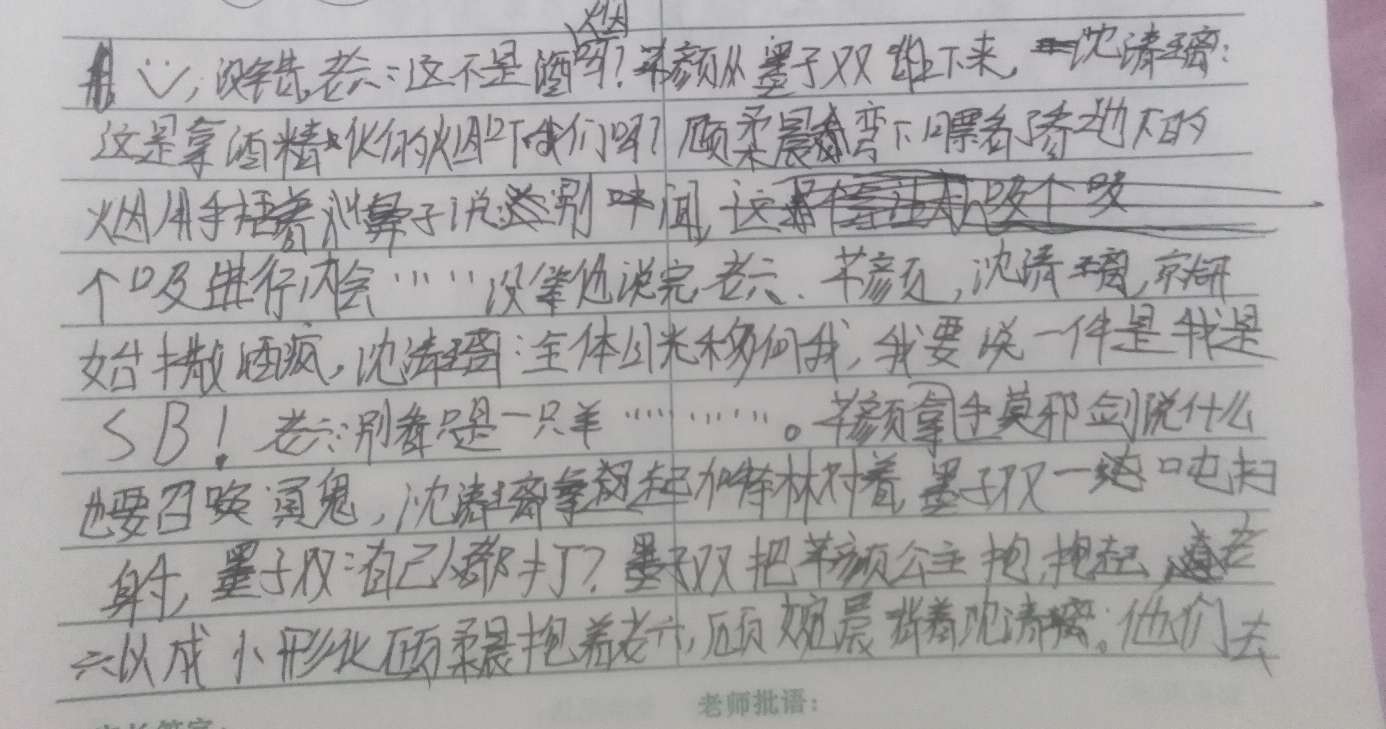 烟
，没错，老六：这不是酒吗？芊颜从墨子双跳下来，沈清璃：
这是拿酒精做的烟吓我们呀？顾柔晨弯下腰看了看地下的
烟用手捂着鼻子说别闻，这
个吸进行内会……没等他说完老六、芊颜，沈清璃，就开
始撒酒疯，沈清璃：全体目光移向我，我要说一件是我是
SB！老六：别看只是一只羊…………。芊颜拿手莫邪剑说什么
也要召唤 鬼，沈清璃拿起加特林对着墨子双一口扫
射，墨子双：自己人都打？墨子双把芊颜公主抱，抱起，老
六以成小形化顾柔晨抱着老六，顾婉晨 着沈清璃。他们去
老师批语：